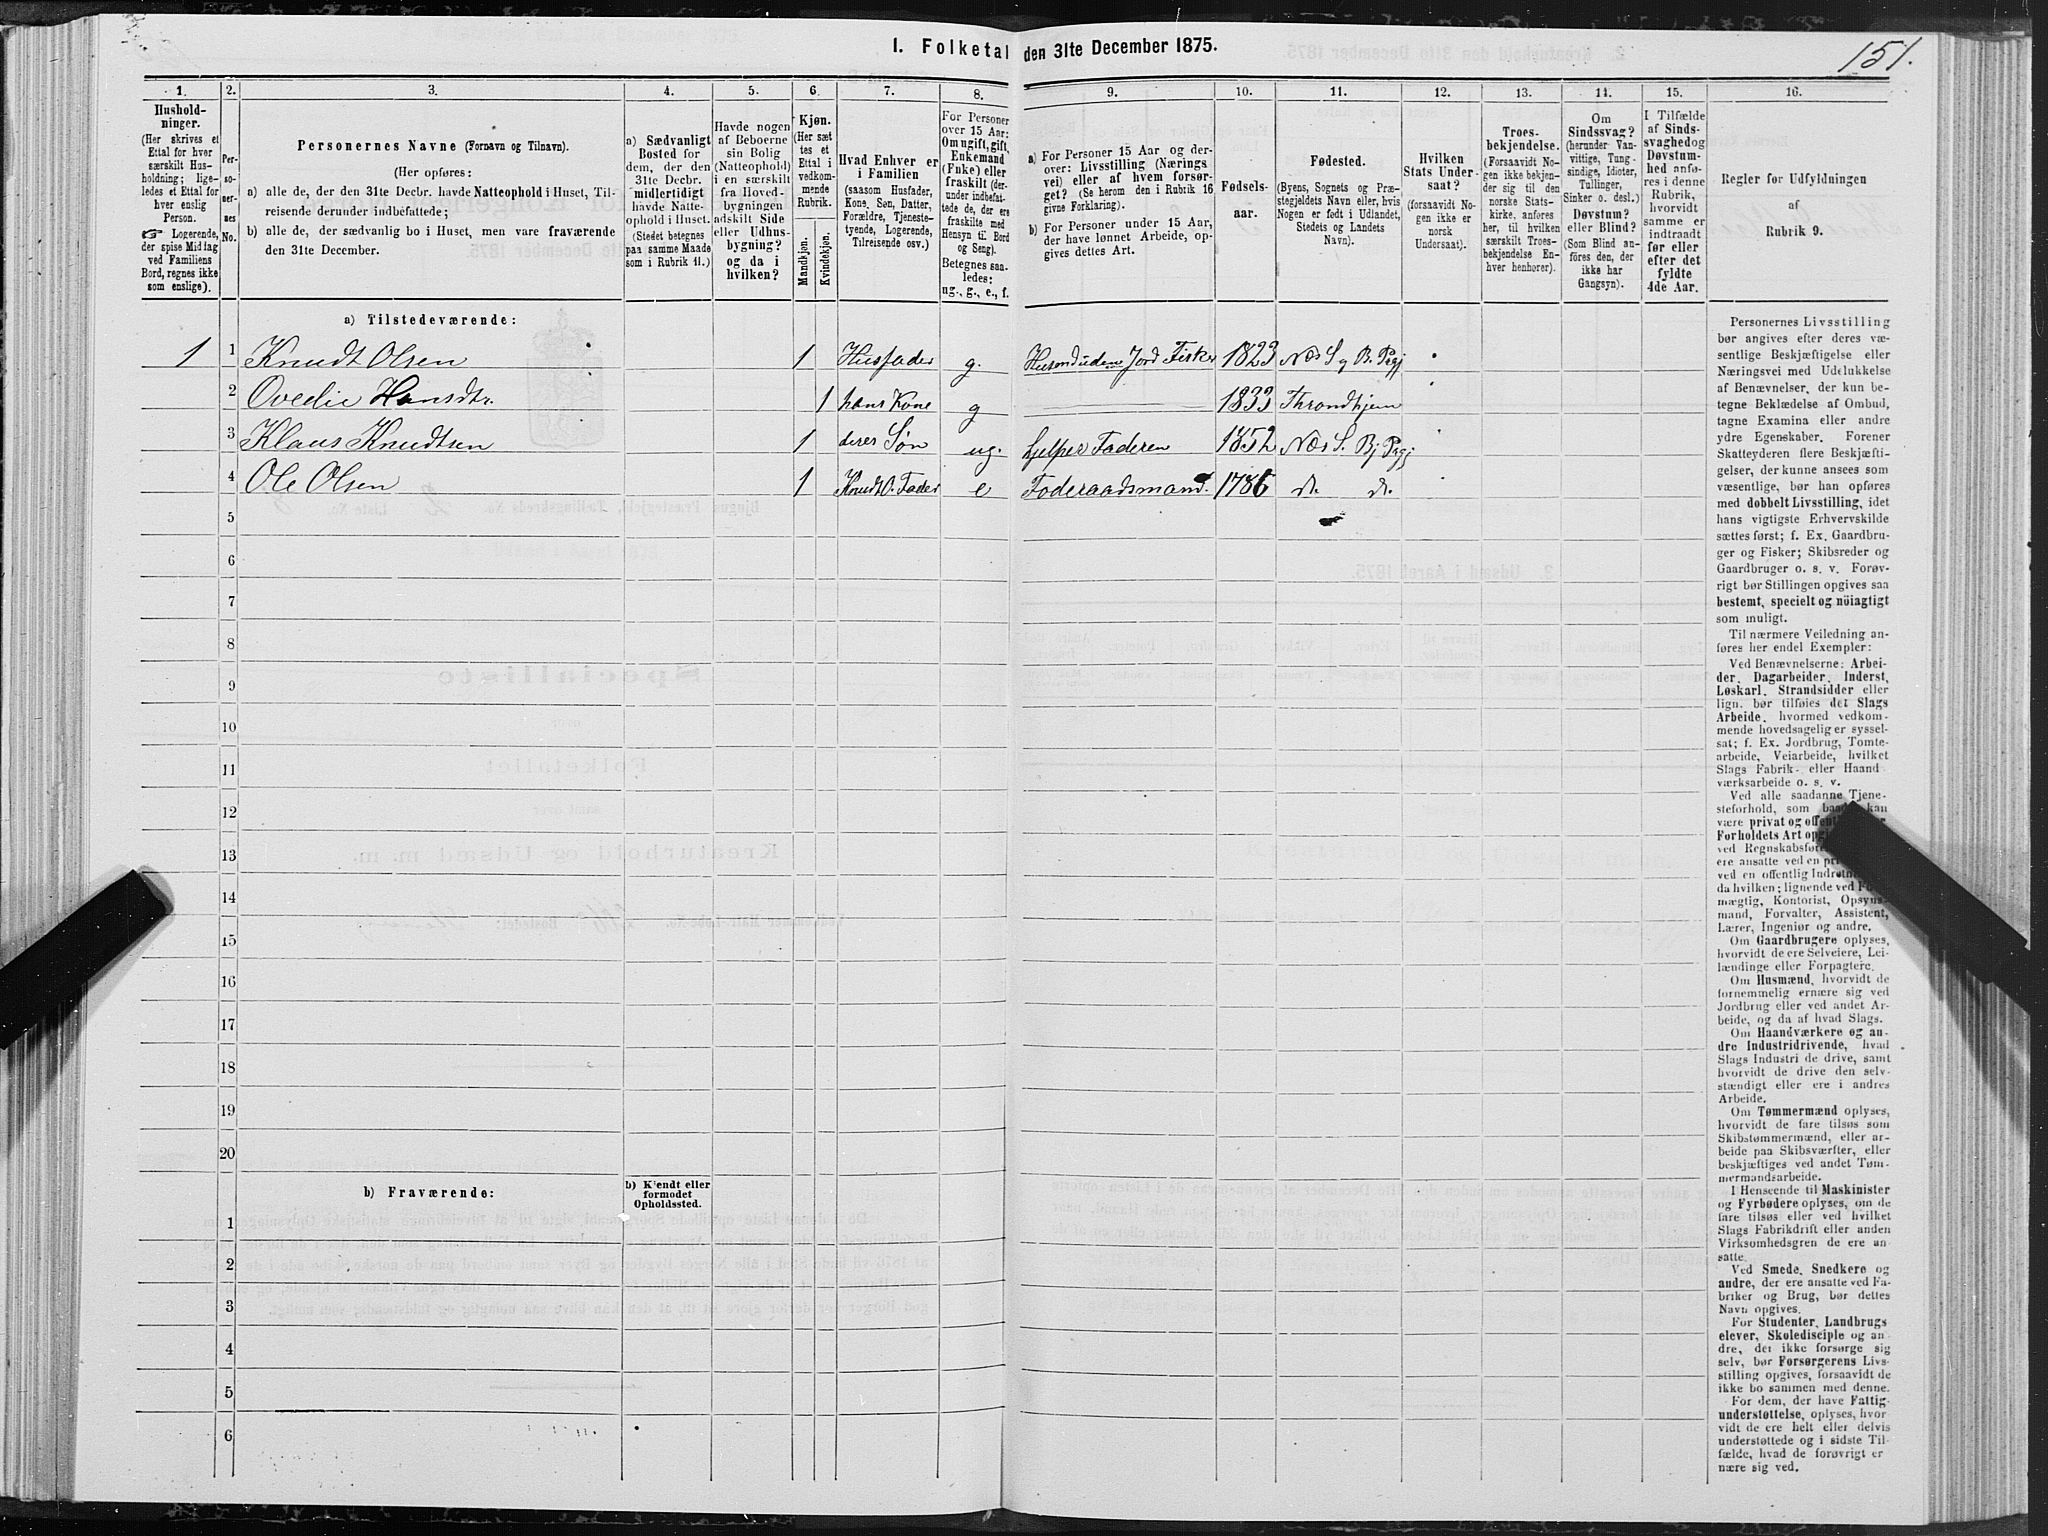 I. Folketal den 31te December 1875.
151.
1.
2.
3.
4.
5.
6.
7.
8.
9.
10.
11.
12.
13.
14.
15.
16.
Hushold-
ninger.
(Her skrives et
Ettal for hver
særskilt Hus-
holdning; lige-
ledes et Ettal for
hver enslig
Person.
☞ Logerende,
der spise Middag
ved Familiens
Bord, regnes ikke
som enslige).
Per-
so-
ner-
nes
No.
Personernes Navne (Fornavn og Tilnavn).
(Her opføres:
a) alle de, der den 31te Decbr. havde Natteophold i Huset, Til-
reisende derunder indbefattede;
b) alle de, der sædvanlig bo i Huset, men vare fraværende
den 31te December.
a) Sædvanligt
Bosted for
dem, der den
31te Decbr.
midlertidigt
havde Natte-
ophold i Huset.
(Stedet betegnes
paa samme Maade
som i Rubrik 11.)
Havde nogen
af Beboerne
sin Bolig
(Natteophold)
i en særskilt
fra Hoved-
bygningen
adskilt Side
eller Udhus-
bygning?
og da i
hvilken?
Kjøn.
(Her sæt-
tes et
Ettal i
vedkom-
mende
Rubrik.
Mandkjøn.
Kvindekjøn.
Hvad Enhver er
i Familien
(saasom Husfader,
Kone, Søn, Datter,
Forældre, Tjeneste-
tyende, Logerende,
Tilreisende osv.)
For Personer
over 15 Aar:
Om ugift, gift,
Enkemand
(Enke) eller
fraskilt (der-
under indbefat-
tede de, der ere
fraskilte med
Hensyn til Bord
og Seng).
Betegnes saa-
ledes:
ug., g., e., f.
a) For Personer 15 Aar og der-
over: Livsstilling (Nærings
vei) eller af hvem forsør-
get? (Se herom den i Rubrik 16
givne Forklaring).
b) For Personer under 15 Aar,
der have lønnet Arbeide, op-
gives dettes Art.
Fødsels-
aar.
Fødested.
(Byens, Sognets og Præ-
stegjeldets Navn eller, hvis
Nogen er født i Udlandet,
Stedets og Landets
Navn).
Hvilken
Stats Under-
saat?
(forsaavidt No-
gen ikke er
norsk
Undersaat).
Troes-
bekjendelse.
(Forsaavidt No-
gen ikke bekjen-
der sig til den
norske Stats-
kirke, anføres
her, til hvilken
særskilt Troes-
bekjendelse En-
hver henhører).
Om
Sindssvag?
(herunder Van-
vittige, Tung-
sindige, Idioter,
Tullinger,
Sinker o. desl.)
Døvstum?
eller Blind?
(Som Blind an-
föres den, der
ikke har
Gangsyn).
I Tilfælde
af Sinds-
svaghed og
Døvstum-
hed anfø-
res i denne
Rubrik,
hvorvidt
samme er
indtraadt
før eller
efter det
fyldte
4de Aar.
Regler for Udfyldningen
af
Rubrik 9.
a) Tilstedeværende:
1 1 Knudt Olsen 1 Husfader g. Husmd uden Jord Fisker 1823 Næs S og B. Prgj
2 Ovedie Hansdtr. 1 hans Kone g 1833 Throndhjem
3 Klaus Knudtsen 1 deres Søn ug. hjelper Faderen 1852 Næs S. Bj Prgj
4 Ole Olsen 1 Knudt O. Fader e Foderaadsmand. 1786 do. do.
5
6
7
8
9
10
11
12
13
14
15
16
17
18
19
20
b) Fraværende:
b) Kjendt eller
formodet
Opholdssted.
1
2
3
4
5
6
Personernes Livsstilling
bør angives efter deres væ-
sentlige Beskjæftigelse eller
Næringsvei med Udelukkelse
af Benævnelser, der kun be-
tegne Beklædelse af Ombud,
tagne Examina eller andre
ydre Egenskaber. Forener
Skatteyderen flere Beskjæfti-
gelser, der kunne ansees som
væsentlige, bør han opføres
med dobbelt Livsstilling, idet
hans vigtigste Erhvervskilde
sættes først; f. Ex. Gaardbru-
ger og Fisker; Skibsreder og
Gaardbruger o. s. v. Forøv-
rigt bør Stillingen opgives saa
bestemt, specielt og nöiagtigt
som muligt.
Til nærmere Veiledning an-
føres her endel Exempler:
Ved Benævnelserne: Arbei-
der, Dagarbeider, Inderst,
Løskarl, Strandsidder eller
lign. bør tilføies det Slags
Arbeide, hvormed vedkom-
mende hovedsagelig er syssel-
sat; f. Ex. Jordbrug, Tomte-
arbeide, Veiarbeide, hvilket
Slags Fabrik- eller Haand-
værksarbeide o. s. v.
Ved alle saadanne Tjene-
steforhold, som kan
være privat og
Forholdets Art
ved
ere ansatte ved en
ved en offentlig
da hvilken; lignende ved
mægtig, Kontorist, Opsyns-
mand, Forvalter, Assistent,
Lærer, Ingeniør og andre.
Om Gaardbrugere oplyses,
hvorvidt de ere Selveiere, Lei-
lændinge eller Forpagtere.
Om Husmænd, hvorvidt de
fornemmelig ernære sig ved
Jordbrug eller ved andet Ar-
beide, og da af hvad Slags.
Om Haandværkere og an-
dre Industridrivende, hvad
Slags Industri de drive, samt
hvorvidt de drive den selv-
stændigt eller ere i andres
Arbeide.
Om Tømmermænd oplyses,
hvorvidt de fare tilsøs som
Skibstømmermænd, eller ar-
beide paa Skibsværfter, eller
beskjæftiges ved andet Tøm-
mermandsarbeide.
I Henseende til Maskinister
og Fyrbødere oplyses, om de
fare tilsøs eller ved hvilket
Slags Fabrikdrift eller anden
Virksomhedsgren de ere an-
satte.
Ved Smede, Snedkere og
andre, der ere ansatte ved Fa-
briker og Brug, bør dettes
Navn opgives.
For Studenter, Landbrugs
elever, Skoledisciple og an-
dre, der ikke forsørge sig
selv, bør Forsørgerens Livs-
stilling opgives, forsaavidt de
ikke bo sammen med denne.
For dem, der have Fattig
understøttelse, oplyses, hvor
vidt de ere helt eller delvis
understøttede og i sidste Til-
fælde, hvad de forøvrigt er
nære sig ved.